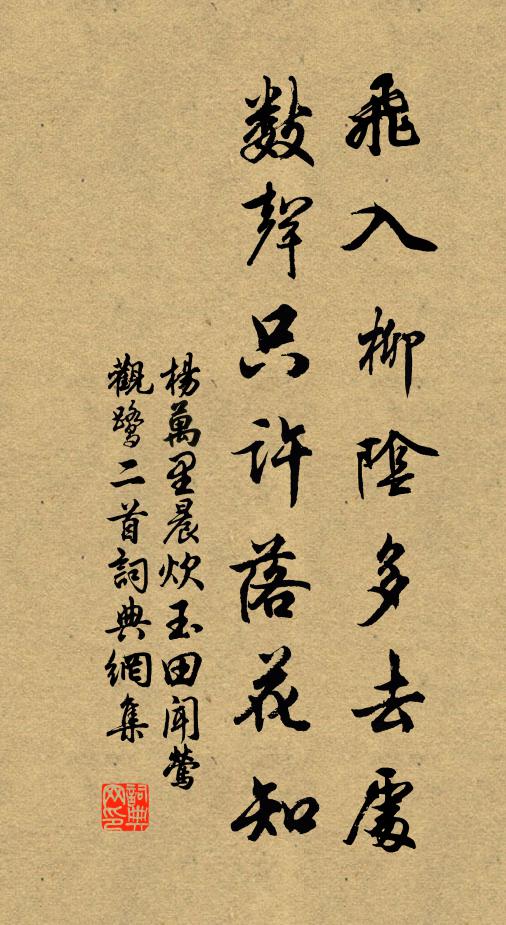 飛入柳陰多去處
數聲只許落花知
楊萬里晨炊玉田聞鶯
觀鷺二首詞典網集
詞典
网印